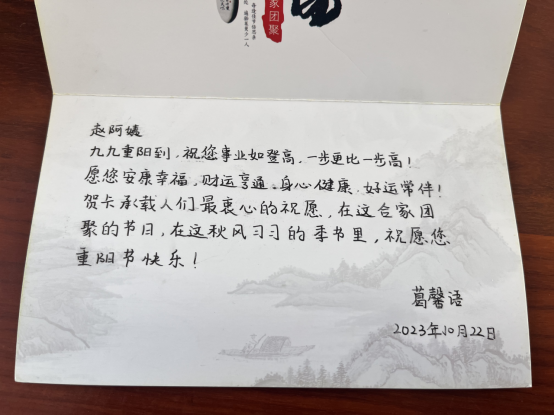 家团聚
遍插茱萸少一人
赵阿姨
九九重阳到，祝您事业如登高，一步更比一步高！
愿您安康幸福，财运亨通，身心健康，好运常伴！
贺卡承载人们最衷心的祝愿，在这合家团
聚的节日，在这秋风习习的季书里，祝愿您
重阳节快乐！
葛馨语
2023年10月22日